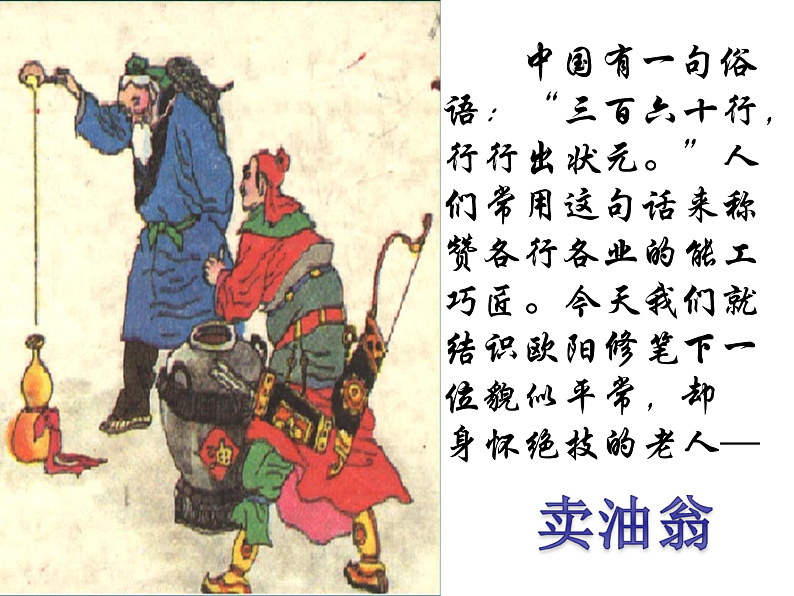 中国有一句俗
语：“三百六十行，
行行出状元。”人
们常用这句话来称
赞各行各业的能工
巧匠。今天我们就
结识欧阳修笔下一
位貌似平常，却
身怀绝技的老人—
卖油翁
油